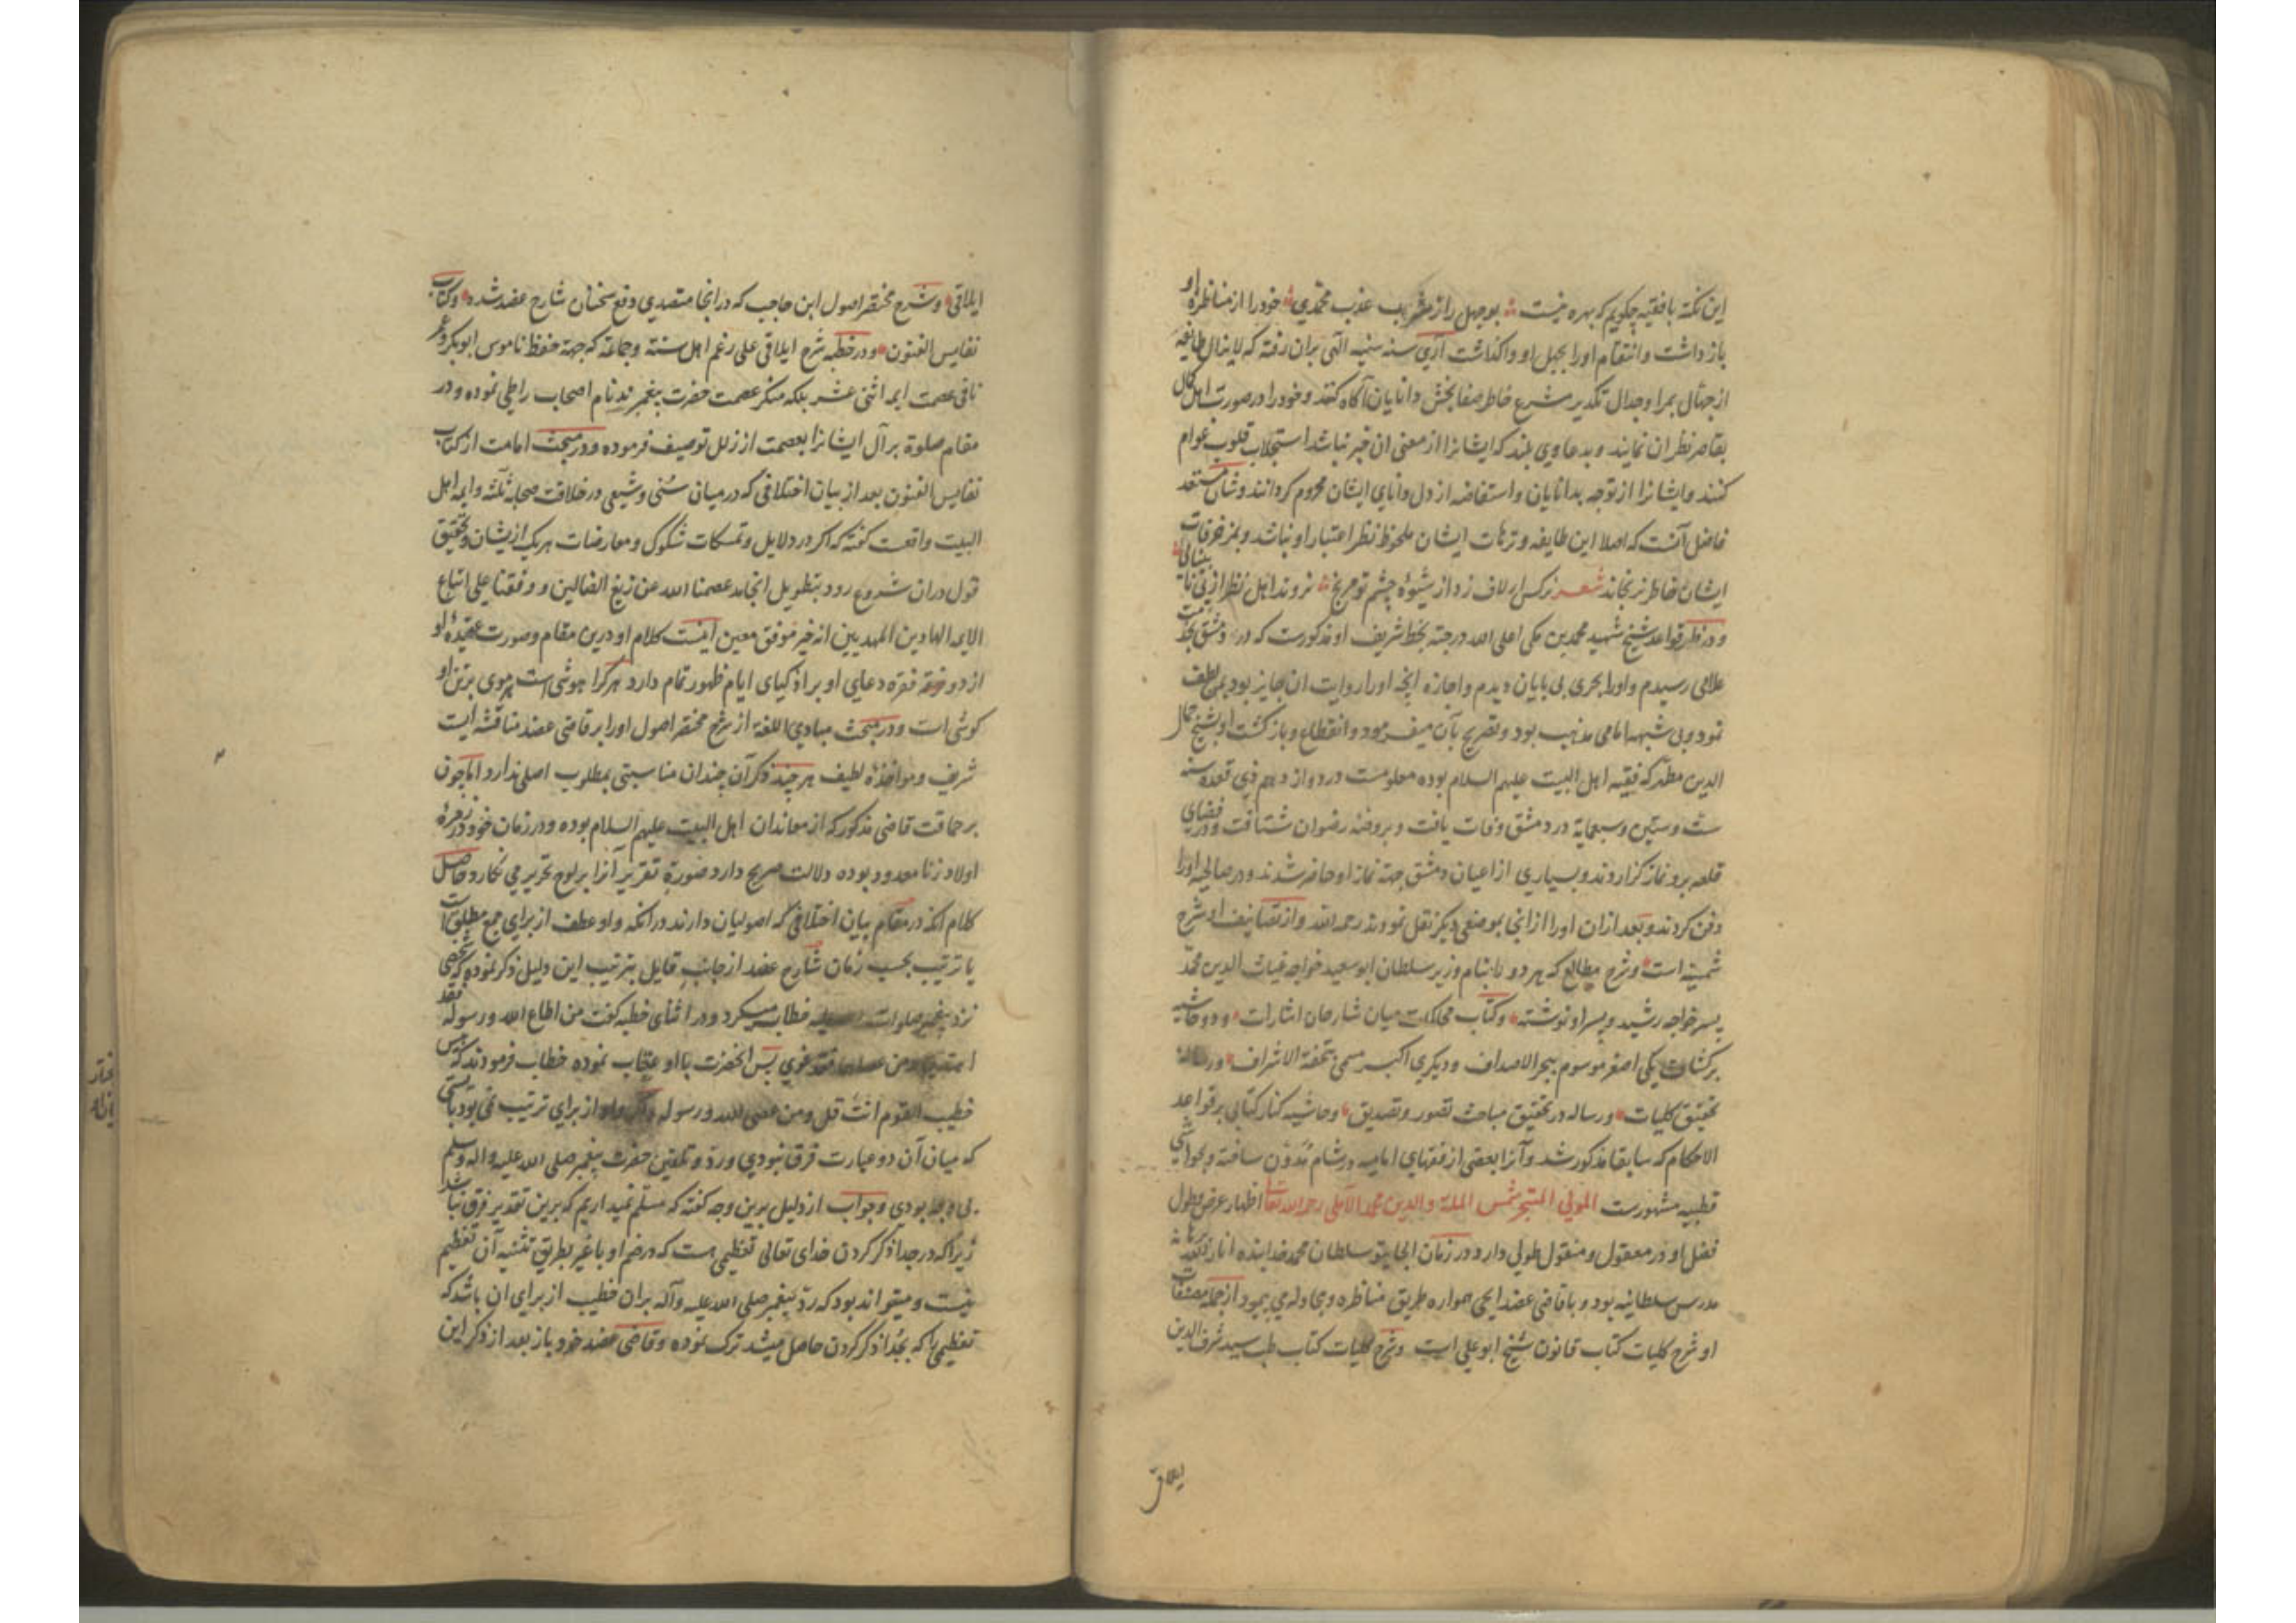 این نکته با فقیه چگویم که بهره نیست بوجهل را ز مشرب عذب محمدی خود را از مناظره او
بازداشت و انتقام او را بجهل او واگذاشت آری سنه سنیه الهی بران رفته که لایزال طایفه
از جهال بمرا و جدال تکدیر مشرع خاطر صفابخش دانایان آگاه کنند و خود را در صورت اهل کمال
بقاصر نظران نمایند و بدعاوی بلند که ایشانرا از معنی ان خبر نباشد استجلاب قلوب عوام
کنند و ایشانرا از توجه بدانایان و استفاضه از دل دانای ایشان محروم کردانند و شان مستعد
فاضل آنست که اصلا این طایفه و ترهات ایشان ملحوظ نظر اعتبار او نباشد و بمزخرفات
ایشان خاطر نرنجاند شعر نرکس ار لاف زد از شیوه چشم تو مرنج نروند اهل نظر از پی نابینائی
و در ظهر قواعد شیخ شهید محمد بن مکی اعلی الله درجته بخط شریف او مذکورست که در دمشق بخدمت
علامی رسیدم و او را بحری بی پایان دیدم و اجازه انچه او را روایت ان جایز بود بمن لطف
نمود و بی شبهه امامی مذهب بود و تصریح بآن میفرمود و انقطاع و بازگشت او بشیخ جمال
الدین مطهر که فقیه اهل البیت علیهم السلام بوده معلومست در دوازدهم ذی قعده سنه
ست و ستین و سبعمایة در دمشق وفات یافت و بروضه رضوان شتافت و در فضای
قلعه برو نماز گزاردند و بسیاری از اعیان دمشق جهة نماز او حاضر شدند و در صالحیه او را
دفن کردند و بعد ازان او را از انجا بموضعی دیگر نقل نمودند رحمه الله و از تصانیف او شرح
شمسیه است و شرح مطالع که هر دو را بنام وزیر سلطان ابوسعید خواجه غیاث الدین محمد
پسر خواجه رشید و پسر او نوشته و کتاب محاکمات میان شارحان اشارات و دو حاشیه
بر کشاف یکی اصغر موسوم ببحر الاصداف و دیگری اکبر مسمی بتحفة الاشراف و رساله
تحقیق کلیات و رساله در تحقیق مباحث تصور و تصدیق و حاشیه کنار کتابی بر قواعد
الاحکام که سابقا مذکور شد و آنرا بعضی از فقهای امامیه در شام مدون ساخته و بحواشی
قطبیه مشهورست المولی المتبحر شمس الملة والدین محمد الآملی رحمه الله تعالی اظهار عرض و طول
فضل او در معقول و منقول طولی دارد در زمان الجایتو سلطان محمد خدابنده انار الله برهانه
مدرس سلطانیه بود و با قاضی عضد ایجی همواره طریق مناظره و مجادله می پیمود از جمله مصنفات
او شرح کلیات کتاب قانون شیخ ابوعلی است و شرح کلیات کتاب طب سید شرف الدین
ایلاقی
ایلاقی و شرح مختصر اصول ابن حاجب که در انجا متصدی دفع سخنان شارح عضد شده و کتاب
نفایس الفنون و در خطبه شرح ایلاقی علی رغم اهل سنة و جماعة که جهة حفظ ناموس ابوبکر و عمر
نافی عصمت ایمه اثنی عشر بلکه منکر عصمت حضرت پیغمبرند نام اصحاب را طی نموده و در
مقام صلوة بر آل ایشانرا بعصمت از زلل توصیف فرموده و در مبحث امامت از کتاب
نفایس الفنون بعد از بیان اختلافی که در میان سنی و شیعی در خلافت صحابه ثلثه و ایمه اهل
البیت واقعست گفته که اکر در دلایل و تمسکات شکوک و معارضات هر یک از یشان و تحقیق
قول دران شروع رود بتطویل انجامد عصمنا الله عن زیغ الضالین و وفقنا علی اتباع
الایمه الهادین المهدیین انه خیر موفق معین اینست کلام او درین مقام و صورت عقیده او
از دو فقره دعای او بر اذکیای ایام ظهور تمام دارد هرکرا هوشی است هر موی برتن او
گوشی است و در مبحث مبادی اللغة از شرح مختصر اصول او را بر قاضی عضد مناقشه ایست
شریف و مواخذه لطیف هر چند ذکر آن چندان مناسبتی بمطلوب اصلی ندارد اما چون
بر حماقت قاضی مذکور که از معاندان اهل البیت علیهم السلام بوده و در زمان خود در زمره
اولاد زنا معدود بوده دلالت صریح دارد صورة تقریر آنرا بر لوح تحریر می نکارد حاصل
کلام انکه در مقام بیان اختلافی که اصولیان دارند در انکه واو عطف از برای جمع مطلق است
یا ترتیب بحسب زمان شارح عضد از جانب قایل بترتیب این دلیل ذکر نموده که شخصی
نزد پیغمبر صلوات الله علیه خطابت میکرد و در اثنای خطبه گفت من اطاع الله و رسوله فقد
اهتدی و من عصاهما فقد غوی پس انحضرت با او عتاب نموده خطاب فرمودند که بئس
خطیب القوم انت قل و من عصی الله و رسوله و اکر واو از برای ترتیب نمی بود بایستی
که میان آن دو عبارت فرق نبودی و رد و تلقین حضرت پیغمبر صلی الله علیه و اله و سلم
بی وجه بودی و جواب از دلیل برین وجه گفته که مسلم نمیداریم که برین تقدیر فرق نباشد
زیرا که در جدا ذکر کردن خدای تعالی تعظیمی هست که در ضم او با غیر بطریق تثنیه آن تعظیم
نیست و میتواند بود که رد پیغمبر صلی الله علیه و آله بران خطیب از برای ان باشد که
تعظیمی را که بجدا ذکر کردن حاصل میشد ترک نموده و قاضی عضد خود باز بعد از ذکر این